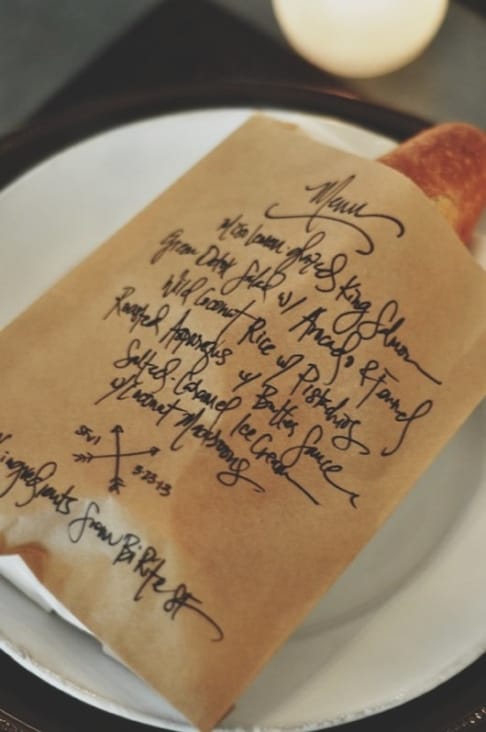 Menu
Miso Lemon glazed King Salmon
Green Salad w/ Avocado & Fennel
Wild Coconut Rice w/ Pistachios
Roasted Asparagus w/ Butter Sauce
Salted-Caramel Ice Cream
w/ Coconut Macaroons
3·23·13
ingredients from BiRite SF